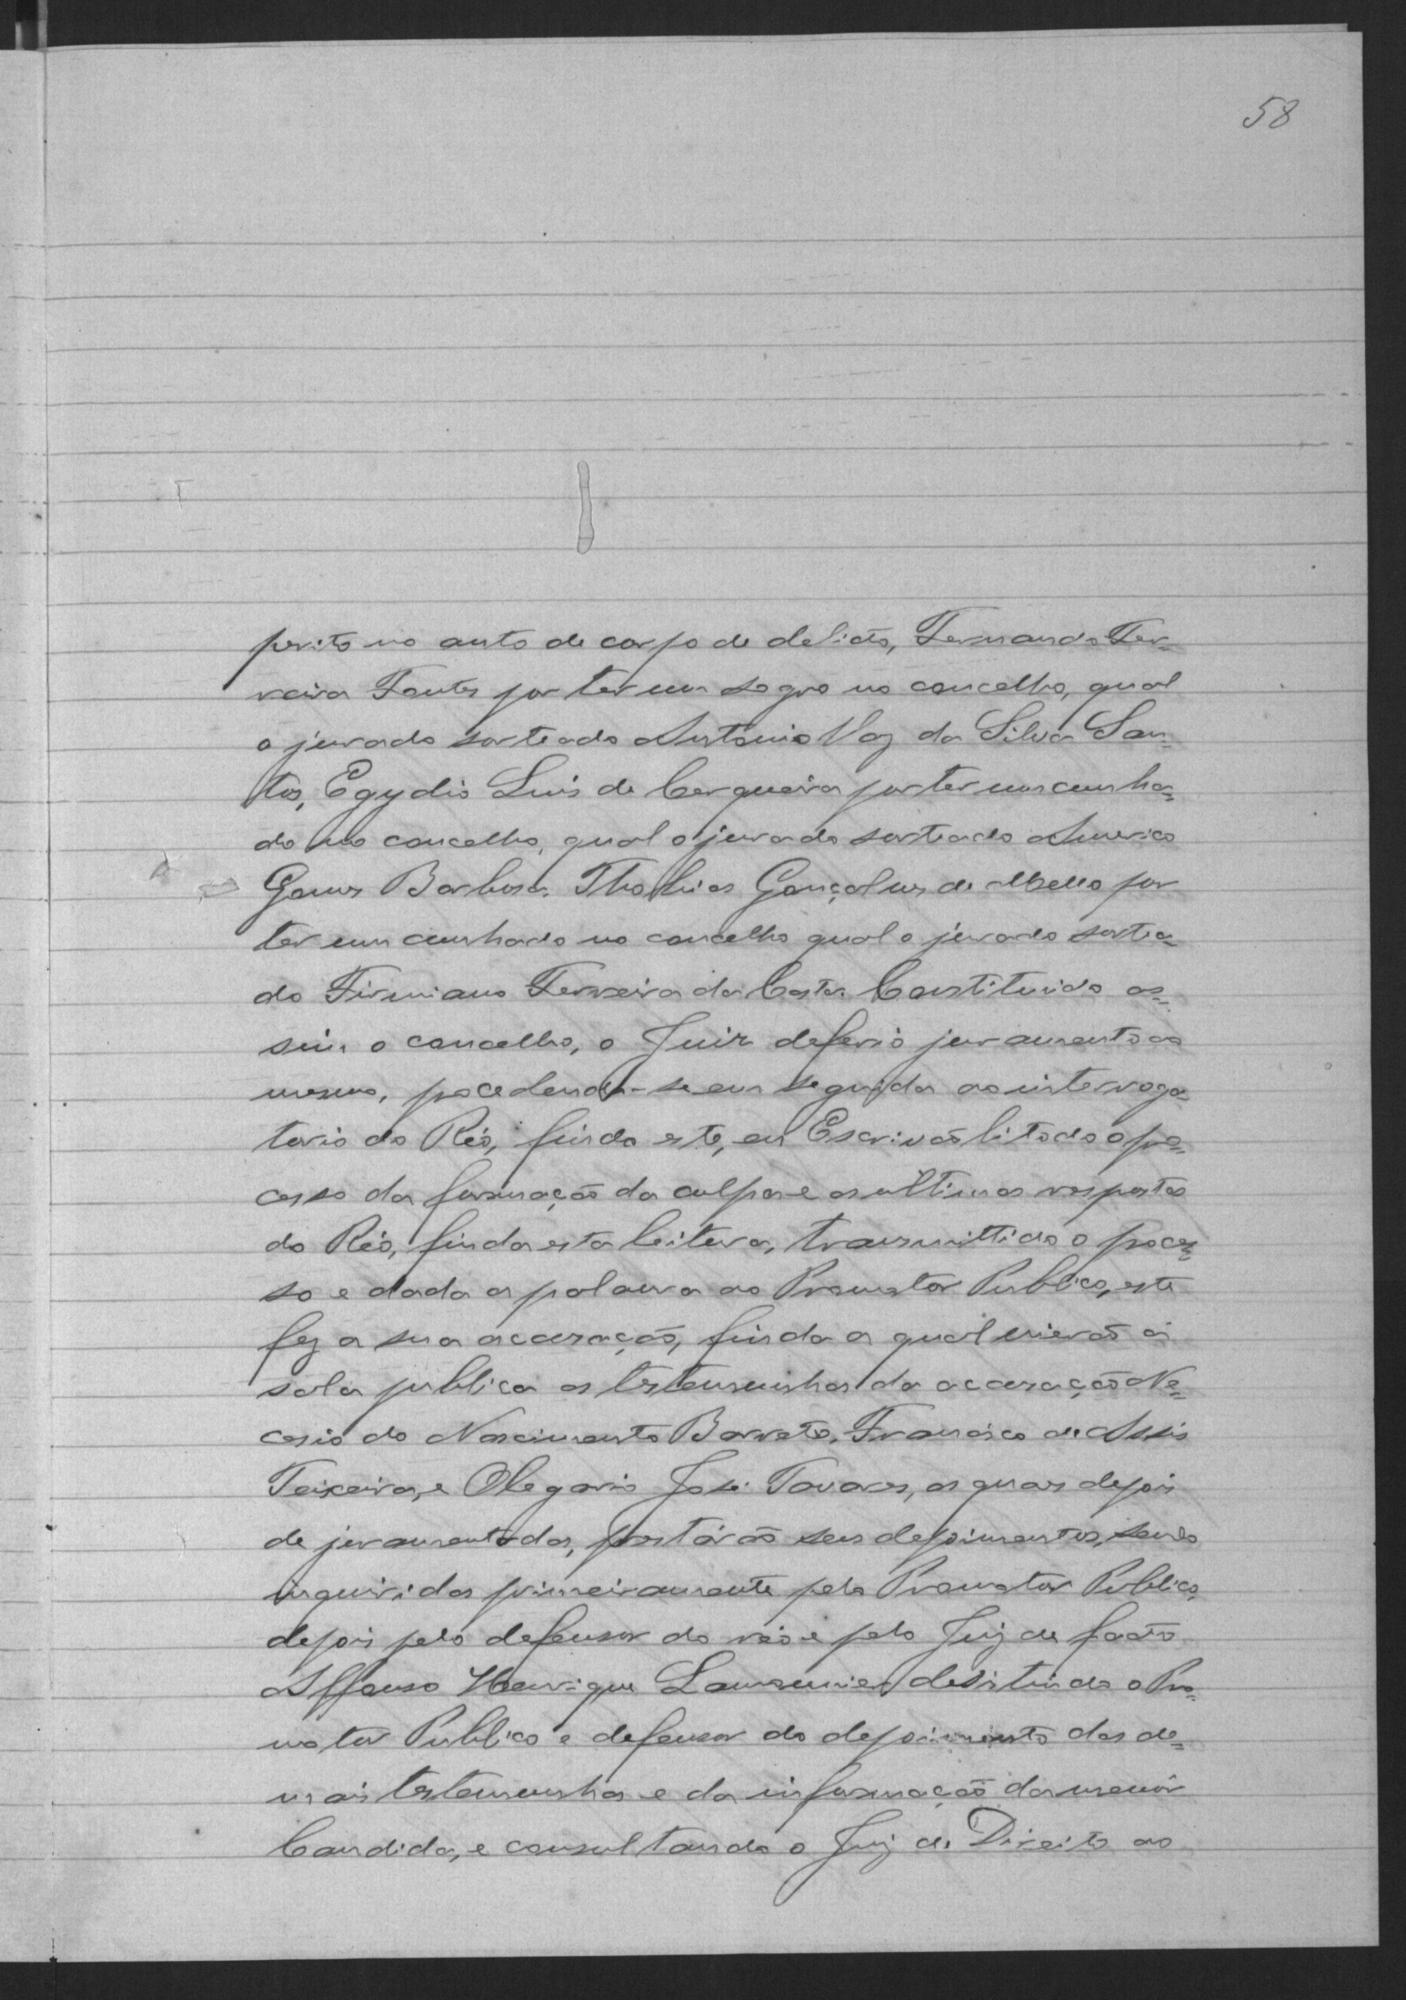 58
perito no auto de corpo de delicto, Fernando Fer-
reira Fontes por ter um sogro no concelho, qual
o jurado sorteado Antonio Vaz da Silva San-
tos, Egydio Luis de Cerqueira por ter um cunha-
do no concelho, qual o jurado sorteado Americo
Gomes Barbosa. Thobias Gonçalves de Mello por
ter um cunhado no concelho qual o jurado sortea-
do Firmiano Ferreira da Costa. Constituido as-
sim o concelho, o Juiz deferio juramento ao
mesmo, procedendo-se em seguida ao interroga-
torio do Réo, findo este, eu Escrivão li todo o pro-
cesso da formação da culpa e as ultimas respostas
do Réo, finda esta leitura, transmittido o proces-
so e dada a palavra ao Promotor Publico, este
fez a sua accusação, finda a qual vierão á
sala publica as testemunhas da accusação Ne-
cesio do Nascimento Barreto, Francisco de Assis
Teixeira, e Olegario José Tavares, as quaes depois
de juramentadas, prestárão seus depoimentos, sendo
inqueridas primeiramente pelo Promotor Publico,
depois pelo defensor do réo e pelo Juiz de facto
Affonso Henrique desistindo o Pro-
motor Publico e defensor do depoimento das de-
mais testemunhas e da informação da menor
Candida, e consultando o Juiz de Direito ao